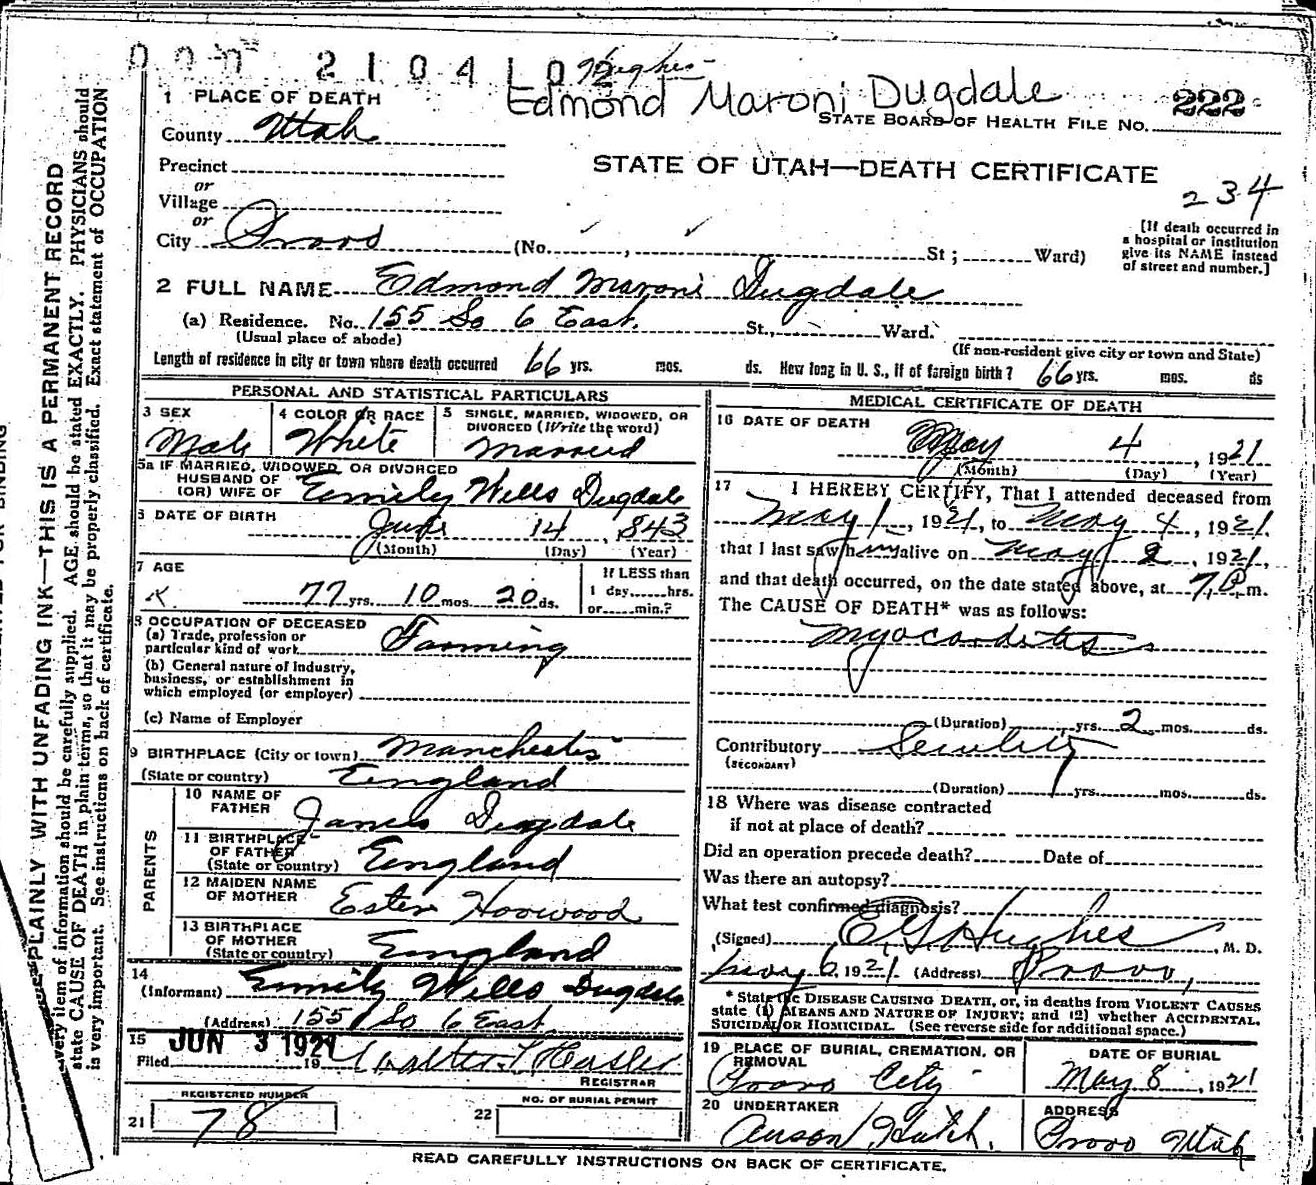 2 1 0 4 1 0 2 Hughes
Edmond Maroni Dugdale
1 PLACE OF DEATH
STATE BOARD OF HEALTH FILE NO. 222
County Utah
STATE OF UTAH—DEATH CERTIFICATE
234
Precinct
or
Village
or
City Provo (No. , St; Ward)
[If death occurred in
a hospital or institution
give its NAME instead
of street and number.]
2 FULL NAME Edmond Maroni Dugdale
(a) Residence. No. 155 So 6 East. St., Ward.
(Usual place of abode)
(If non-resident give city or town and State)
Length of residence in city or town where death occurred 66 yrs. mos. ds. How long in U. S., if of foreign birth? 66 yrs. mos. ds
PERSONAL AND STATISTICAL PARTICULARS
3 SEX
Male
4 COLOR OR RACE
White
5 SINGLE, MARRIED, WIDOWED, OR
DIVORCED (Write the word)
Married
5a IF MARRIED, WIDOWED, OR DIVORCED
HUSBAND OF
(OR) WIFE OF Emily Wells Dugdale
6 DATE OF BIRTH
June 14, 843
(Month) (Day) (Year)
7 AGE
77 yrs. 10 mos. 20 ds.
If LESS than
1 day hrs.
or min.?
8 OCCUPATION OF DECEASED
(a) Trade, profession or
particular kind of work Farming
(b) General nature of Industry,
business, or establishment in
which employed (or employer)
(c) Name of Employer
9 BIRTHPLACE (City or town) Manchester
(State or country) England
PARENTS
10 NAME OF
FATHER James Dugdale
11 BIRTHPLACE
OF FATHER
(State or country) England
12 MAIDEN NAME
OF MOTHER Ester Horwood
13 BIRTHPLACE
OF MOTHER
(State or country) England
14
(Informant) Emily Wells Dugdale
(Address) 155 So 6 East.
15
Filed JUN 3 1921 19 Walter T Hasler
REGISTRAR
REGISTERED NUMBER
21 78
NO. OF BURIAL PERMIT
22
MEDICAL CERTIFICATE OF DEATH
16 DATE OF DEATH
May 4, 1921
(Month) (Day) (Year)
17 I HEREBY CERTIFY, That I attended deceased from
May 1, 1921, to May 4, 1921.
that I last saw him alive on May 2, 1921,
and that death occurred, on the date stated above, at 7 P. m.
The CAUSE OF DEATH* was as follows:
Myocarditis
(Duration) yrs. 2 mos. ds.
Contributory Senility
(SECONDARY)
(Duration) yrs. mos. ds.
18 Where was disease contracted
if not at place of death?
Did an operation precede death? Date of
Was there an autopsy?
What test confirmed diagnosis?
(Signed) E G Hughes, M. D.
May 6, 1921 (Address) Provo,
* State the DISEASE CAUSING DEATH, or, in deaths from VIOLENT CAUSES
state (1) MEANS AND NATURE OF INJURY; and (2) whether ACCIDENTAL,
SUICIDAL, OR HOMICIDAL. (See reverse side for additional space.)
19 PLACE OF BURIAL, CREMATION, OR
REMOVAL
Provo City
DATE OF BURIAL
May 8, 1921
20 UNDERTAKER
Anson Hatch.
ADDRESS
Provo Utah
READ CAREFULLY INSTRUCTIONS ON BACK OF CERTIFICATE.
PLAINLY WITH UNFADING INK—THIS IS A PERMANENT RECORD
every item of information should be carefully supplied. AGE should be stated EXACTLY. PHYSICIANS should
state CAUSE OF DEATH in plain terms, so that it may be properly classified. Exact statement of OCCUPATION
is very important. See instructions on back of certificate.